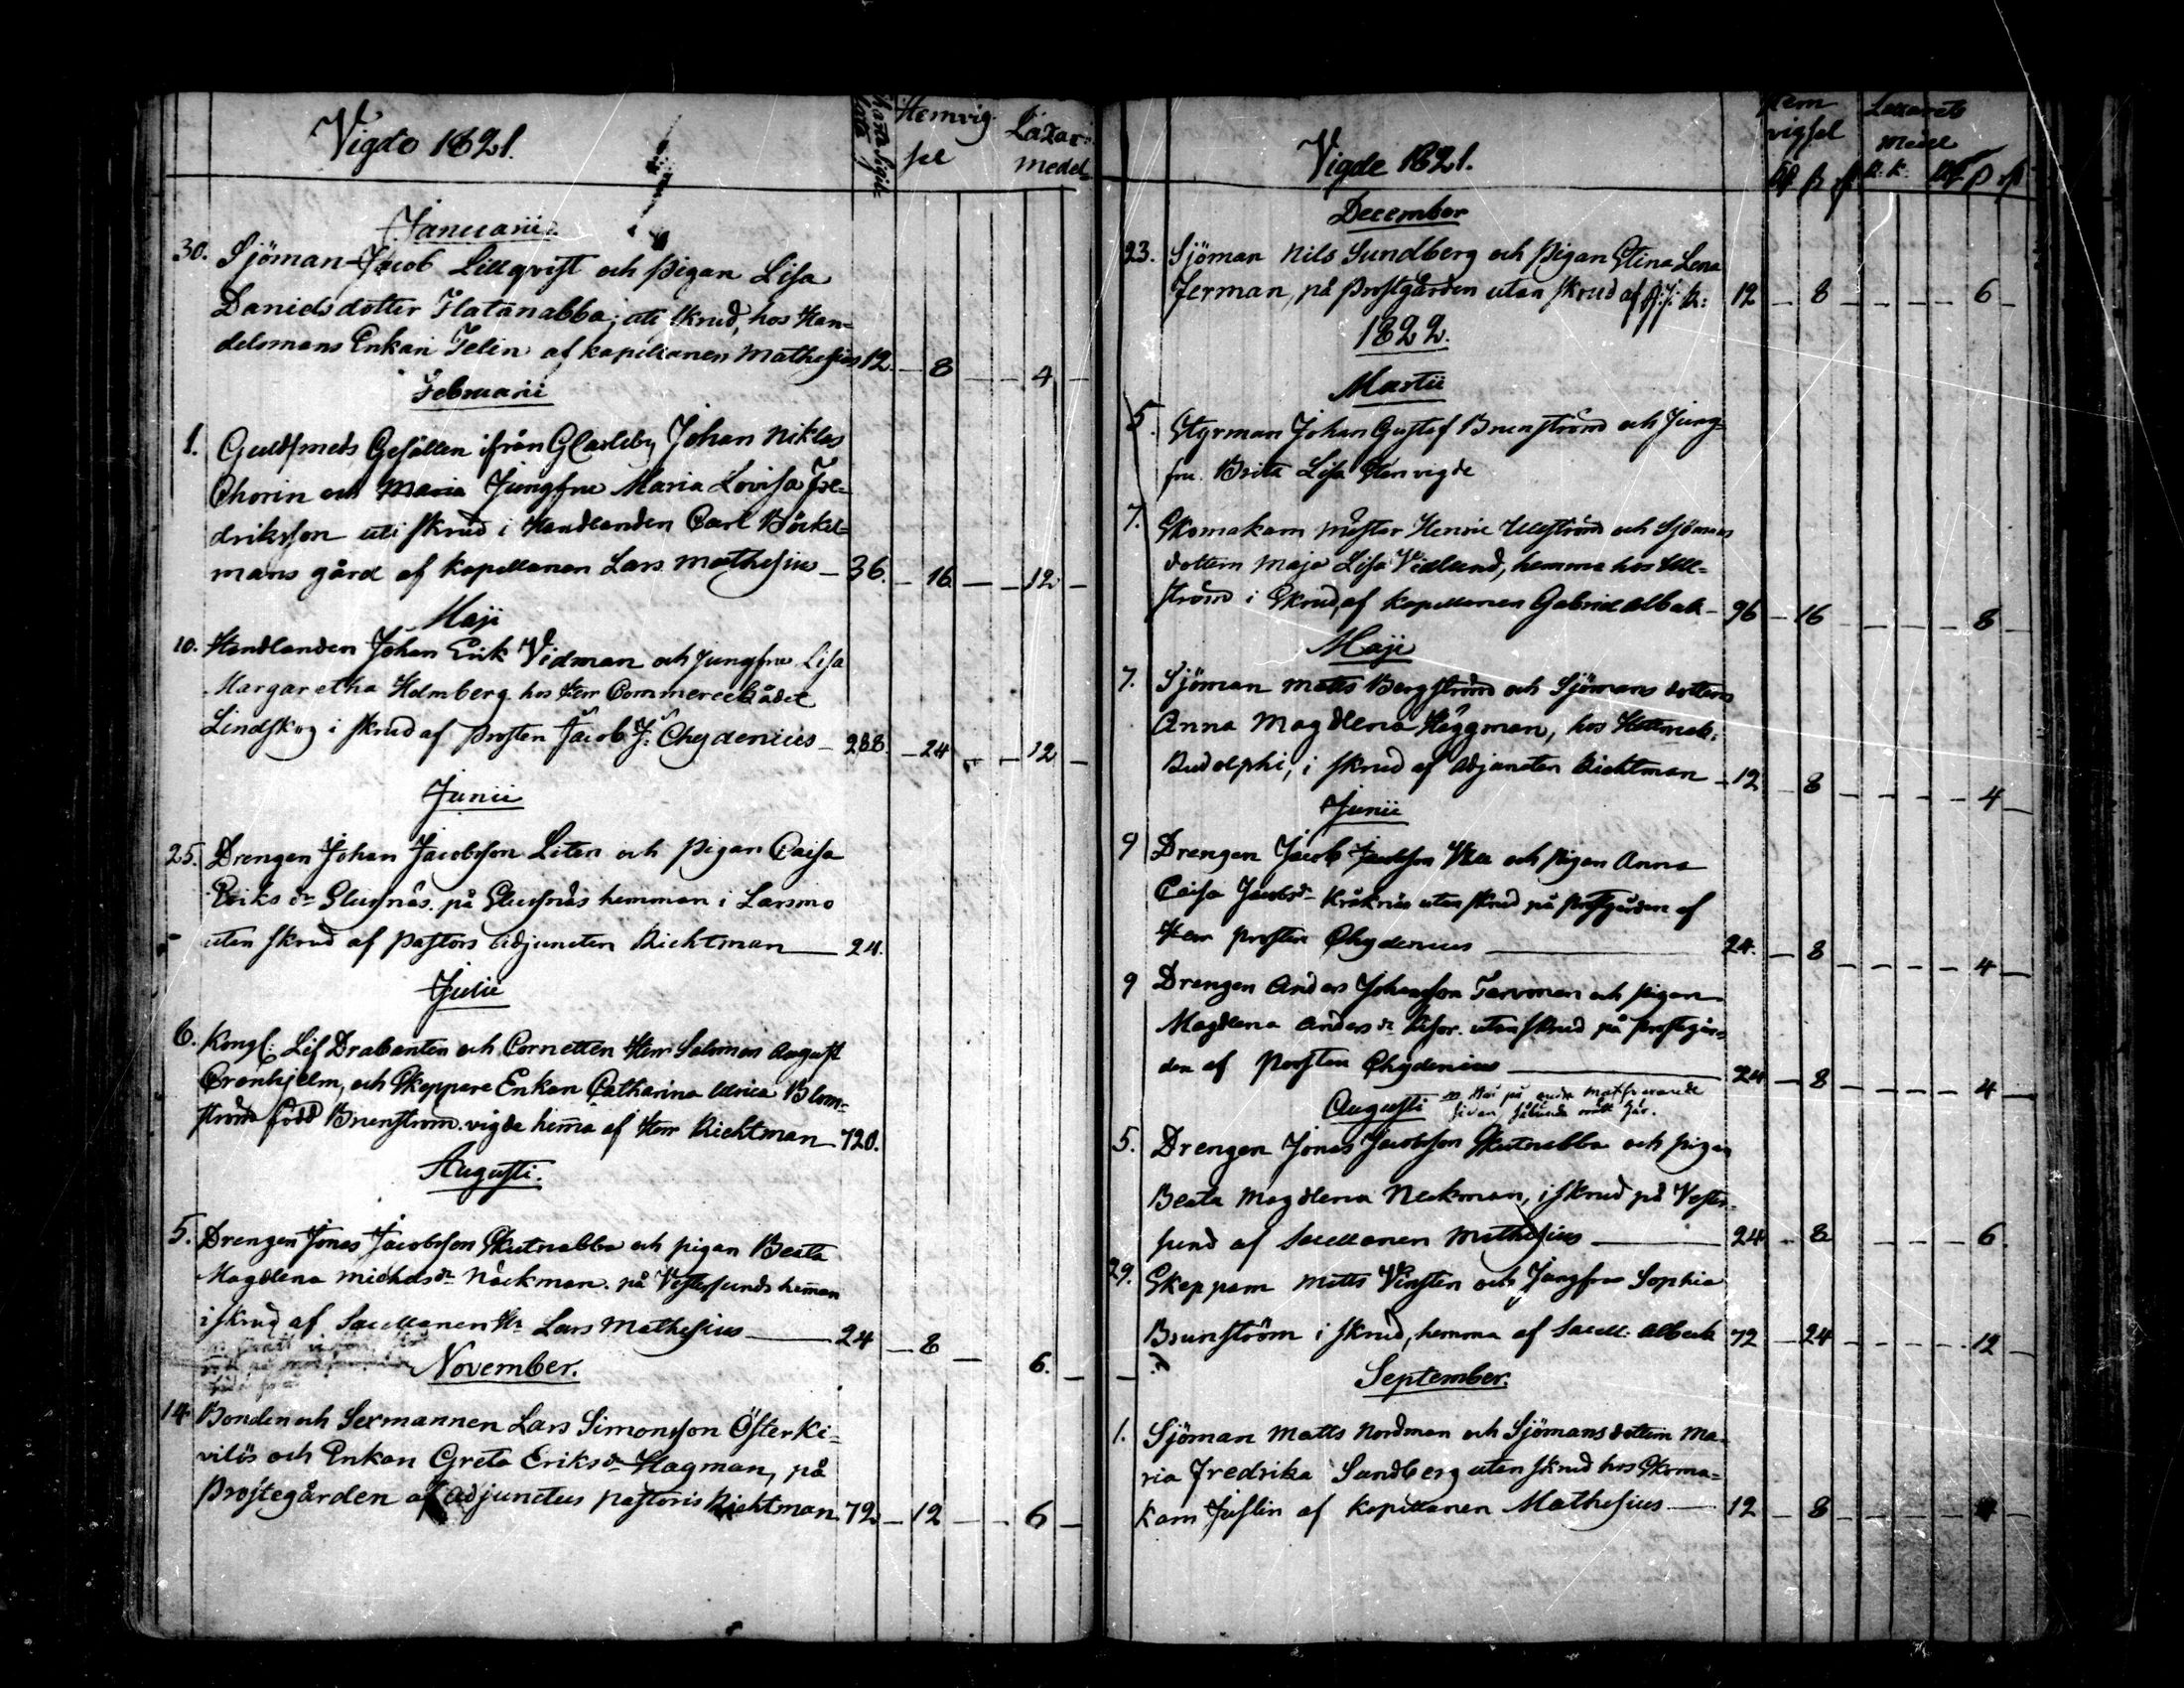 Vigde 1821.
Hemvig-
sel
Lazar:
medel
Januarii
30. Sjöman Jacob Lillqvist och Pigan Lisa
Danielsdotter Flatanabba, uti skrud, hos Han-
delsmans Enkan Telin af kapellanen Mathesius 12 — 8 — 4 —
Februarii
1. Guldsmeds Gesällen ifrån GCarleby Johan Niklas
Thorin och Maria Jungfru Maria Lovisa Fre-
driksson uti skrud i Handlanden Carl Böckel-
mans gård af Kapellanen Lars Mathesius — 36. — 16 — 12 —
Maji
10. Handlanden Johan Erik Vidman och Jungfru Lisa
Margaretha Holmberg hos Herr Commercerådet
Lindskog i skrud af Prosten Jacob J: Chydenius — 288. — 24 — 12 —
Junii
25. Drengen Johan Jacobsson Liten och Pigan Caisa
Eriks dr Slusnäs på Slusnäs hemman i Larsmo
utan skrud af Pastors Adjuncten Richtman — 24.
Julii
6. Kongl: Lif Drabanten och Cornetten Herr Salomon August
Cronhjelm, och Skeppare Enkan Catharina Ulrica Blom-
ström född Brunström vigde hema af Herr Richtman 720.
Augusti.
5. Drengen Jonas Jacobsson Skutnabba och pigan Beata
Magdlena Michelsdr Näckman på Vestersunds heman
i skrud af Sacellanen Hr Lars Mathesius — 24 — 8 — 6. —
November.
14 Bonden och Sexmannen Lars Simonsson Öster Ki-
vilös och Enkan Greta Eriksdr Hagman, på
Prostegården af Adjunctus pastoris Richtman 72 — 12 — 6 —
Vigde 1821.
Hem
vigsel
Lazarets
Medel
December
23. Sjöman Nils Sundberg och Pigan Stina Lena
Ferman, på Prostgården utan skrud af 12 — 8 — 6 —
1822.
Martii
5. Styrman Johan Gustaf Brunström och Jung-
fru Brita Lisa vigde
7. Skomakare mäster Henric Ullström och Sjömans
dottern Maja Lisa Vidlund, hemma hos Ull-
ström i Skrud, af Kapellanen Gabriel Albeck — 96 — 16 — 8 —
Maji
7. Sjöman Matts Bergström och Sjömans dottern
Anna Magdlena Häggman, hos Hattmak:
Rudolphi, i skrud af Adjuncten Richtman — 12 — 8 — 4 —
Junii
9 Drengen Jacob Jacobsson och Pigan Anna
Caisa Jacobsdr Kråknäs utan skrud på Prostgården af
Herr Prosten Chydenius — 24. — 8 — 4 —
9 Drengen Anders Johansson Tarvonen och Pigan
Magdlena Andersdr utan skrud på prostegår-
den af Prosten Chydenius — 24 — 8 — 4 —
Augusti på andra motsvarande
sidan
5. Drengen Jonas Jacobsson Skutnabba och pigan
Beata Magdlena Neckman, i skrud på Vester-
sund af Sacellanen Mathesius — 24 — 8 — 6.
29. Skepparn Matts Vinsten och Jungfrun Sophia
Brunström i skrud, hemma af Sacell: Albeck 72 — 24 — 12 —
September.
1. Sjöman Matts Nordman och Sjömansdottern Ma-
ria Fredrika Sundberg utan skrud hos Skoma-
karn Juslin af Kapellanen Mathesius — 12 — 8 — 4 —